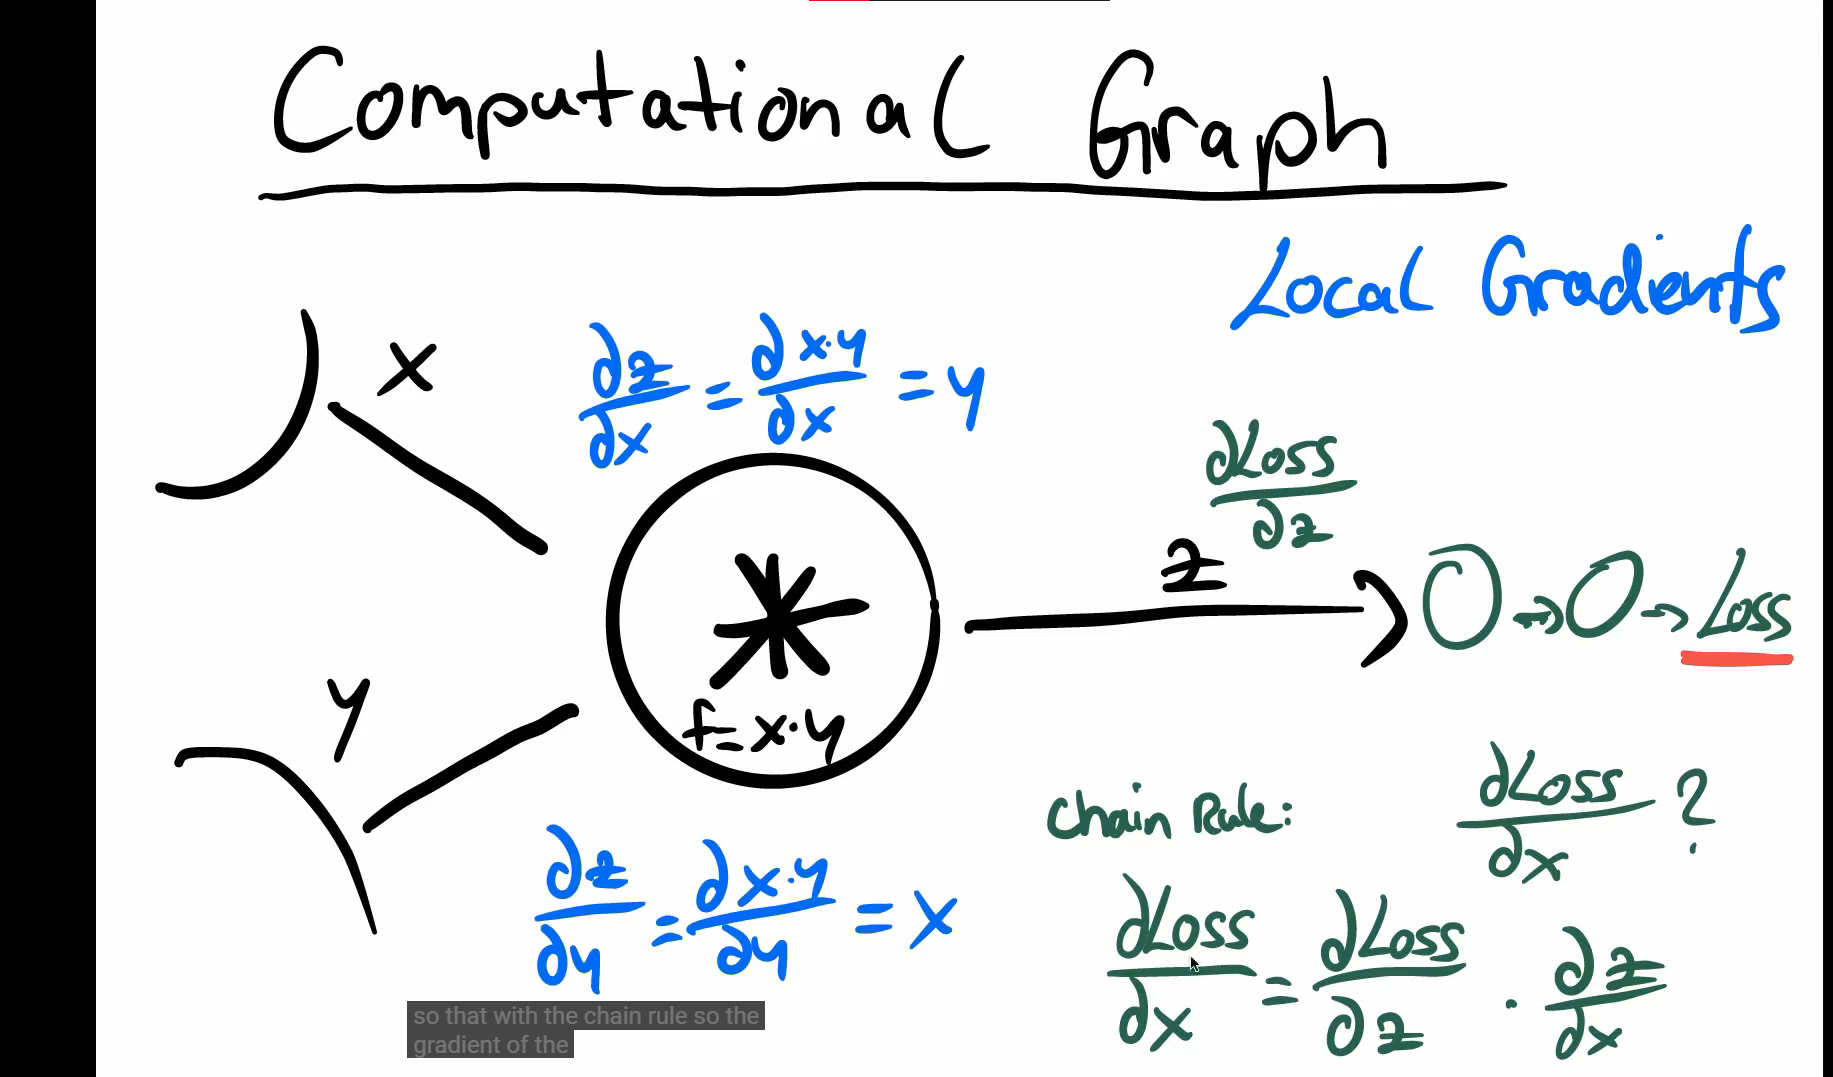 Computational Graph
Local Gradients
x
∂z/∂x = ∂x·y/∂x = y
∂Loss/∂z
z
O → O → Loss
*
f = x·y
y
∂z/∂y = ∂x·y/∂y = x
Chain Rule:
∂Loss/∂x ?
∂Loss/∂x = ∂Loss/∂z · ∂z/∂x
so that with the chain rule so the
gradient of the